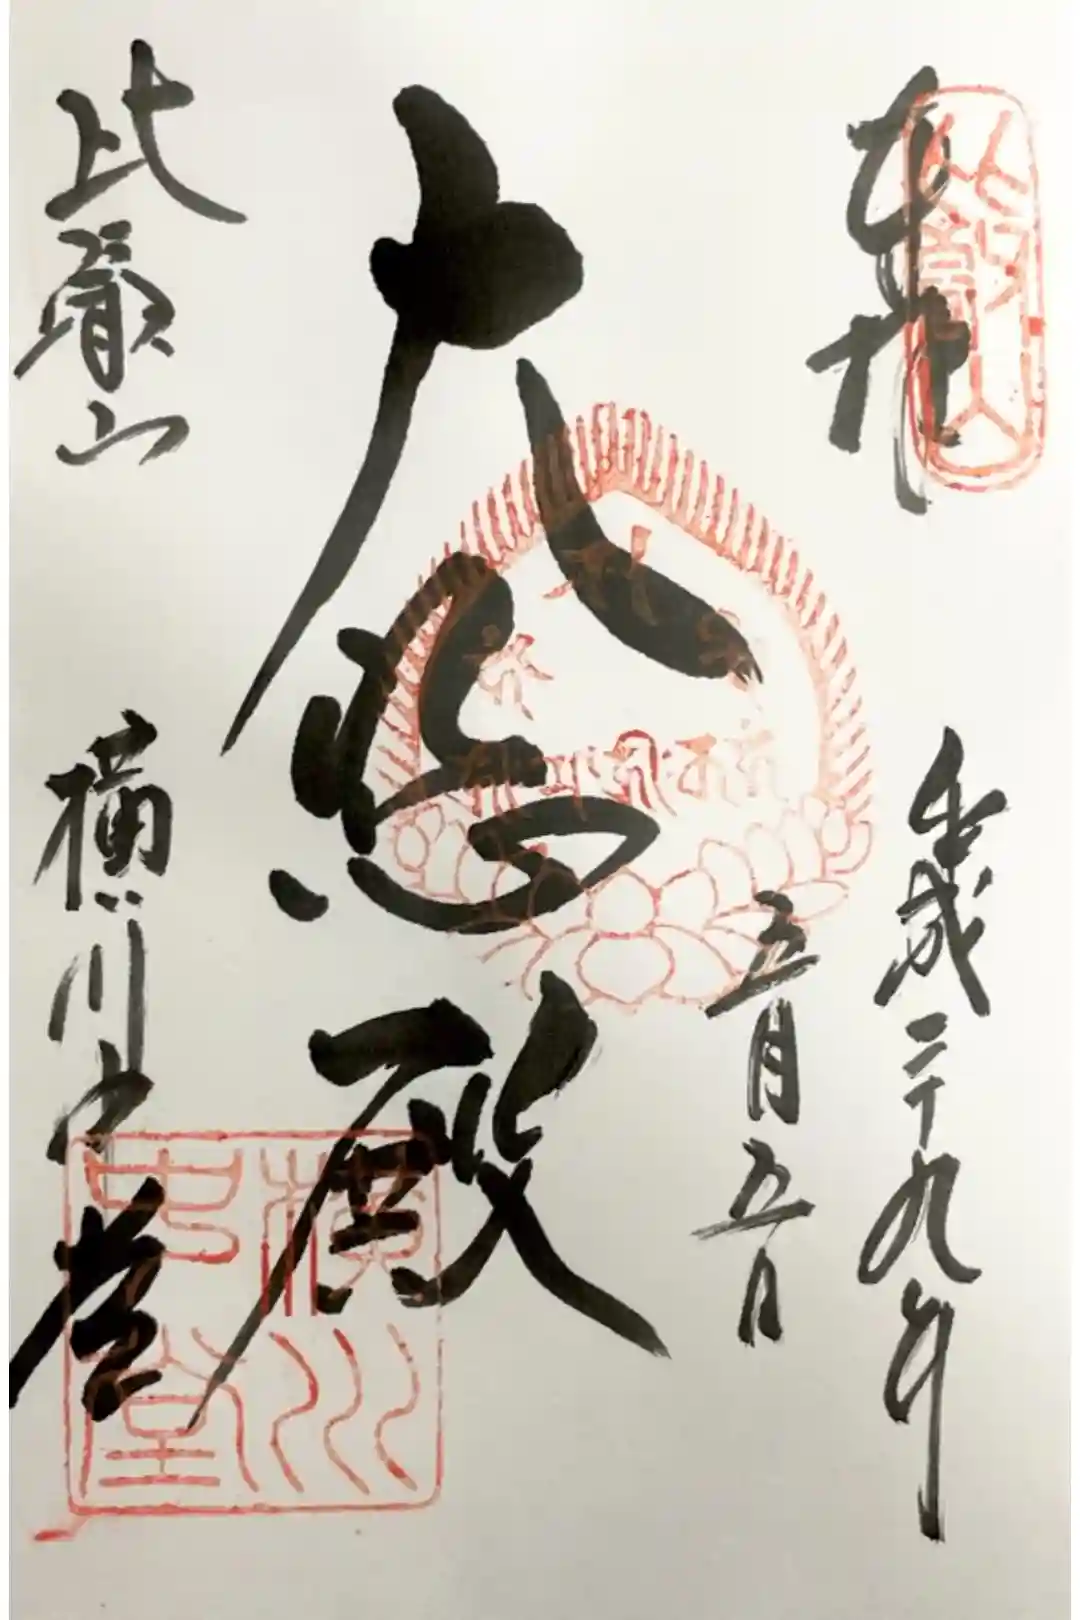 奉拝
比叡山
平成二十九年
五月五日
大悲殿
比叡山
横川中堂
横川中堂